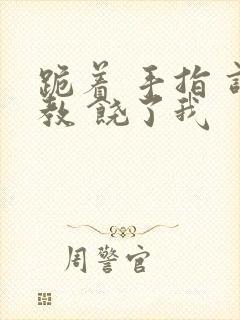 跪着 手指
教 饶了我
周警官